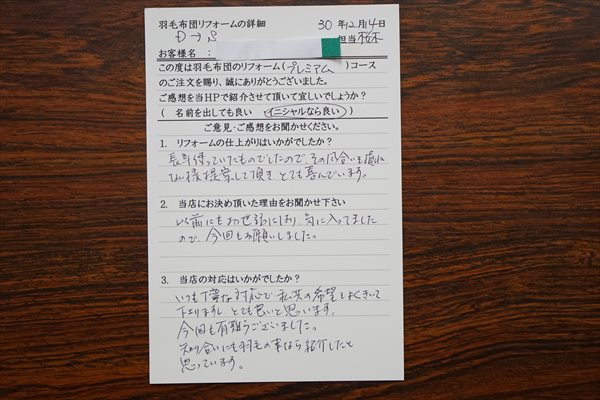 羽毛布団リフォームの詳細 30年12月14日
D→S 担当
お客様名：
この度は羽毛布団のリフォーム(プレミアム)コース
のご注文を賜り、誠にありがとうございました。
ご感想を当HPで紹介させて頂いて宜しいでしょうか？
（ 名前を出しても良い イニシャルなら良い ）
ご意見・ご感想をお聞かせください。
1. リフォームの仕上がりはいかがでしたか？
長年使っていたものでしたので、その風合いも損ね
ない様提案して頂き、とても喜んでいます。
2. 当店にお決め頂いた理由をお聞かせ下さい
以前にもお世話になり、気に入ってました
ので、今回もお願いしました。
3. 当店の対応はいかがでしたか？
いつも丁寧な対応で私共の希望もよくきいて
下さりますし、とても良いと思います。
今回も有難うございました。
知り合いにも羽毛の事なら紹介したと
思っています。